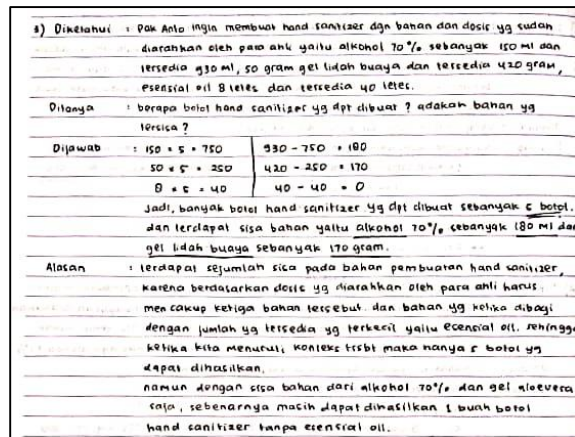 3) Diketahui : Pak Anto ingin membuat hand sanitizer dgn bahan dan dosis yg sudah
diarahkan oleh para ahli yaitu alkohol 70% sebanyak 150 ml dan
tersedia 930 ml, 50 gram gel lidah buaya dan tersedia 420 gram,
esensial oil 8 tetes dan tersedia 40 tetes.
Ditanya : berapa botol hand sanitizer yg dpt dibuat ? adakah bahan yg
tersisa ?
Dijawab : 150 × 5 = 750 930 - 750 = 180
50 × 5 = 250 420 - 250 = 170
8 × 5 = 40 40 - 40 = 0
Jadi, banyak botol hand sanitizer yg dpt dibuat sebanyak 5 botol.
dan terdapat sisa bahan yaitu alkohol 70% sebanyak 180 ml dan
gel lidah buaya sebanyak 170 gram.
Alasan : terdapat sejumlah sisa pada bahan pembuatan hand sanitizer,
karena berdasarkan dosis yg diarahkan oleh para ahli harus
mencakup ketiga bahan tersebut. dan bahan yg ketika dibagi
dengan jumlah yg tersedia yg terkecil yaitu esensial oil. sehingga
ketika kita menuruti konteks trsbt maka hanya 5 botol yg
dapat dihasilkan.
namun dengan sisa bahan dari alkohol 70% dan gel aloevera
saja, sebenarnya masih dapat dihasilkan 1 buah botol
hand sanitizer tanpa esensial oil.